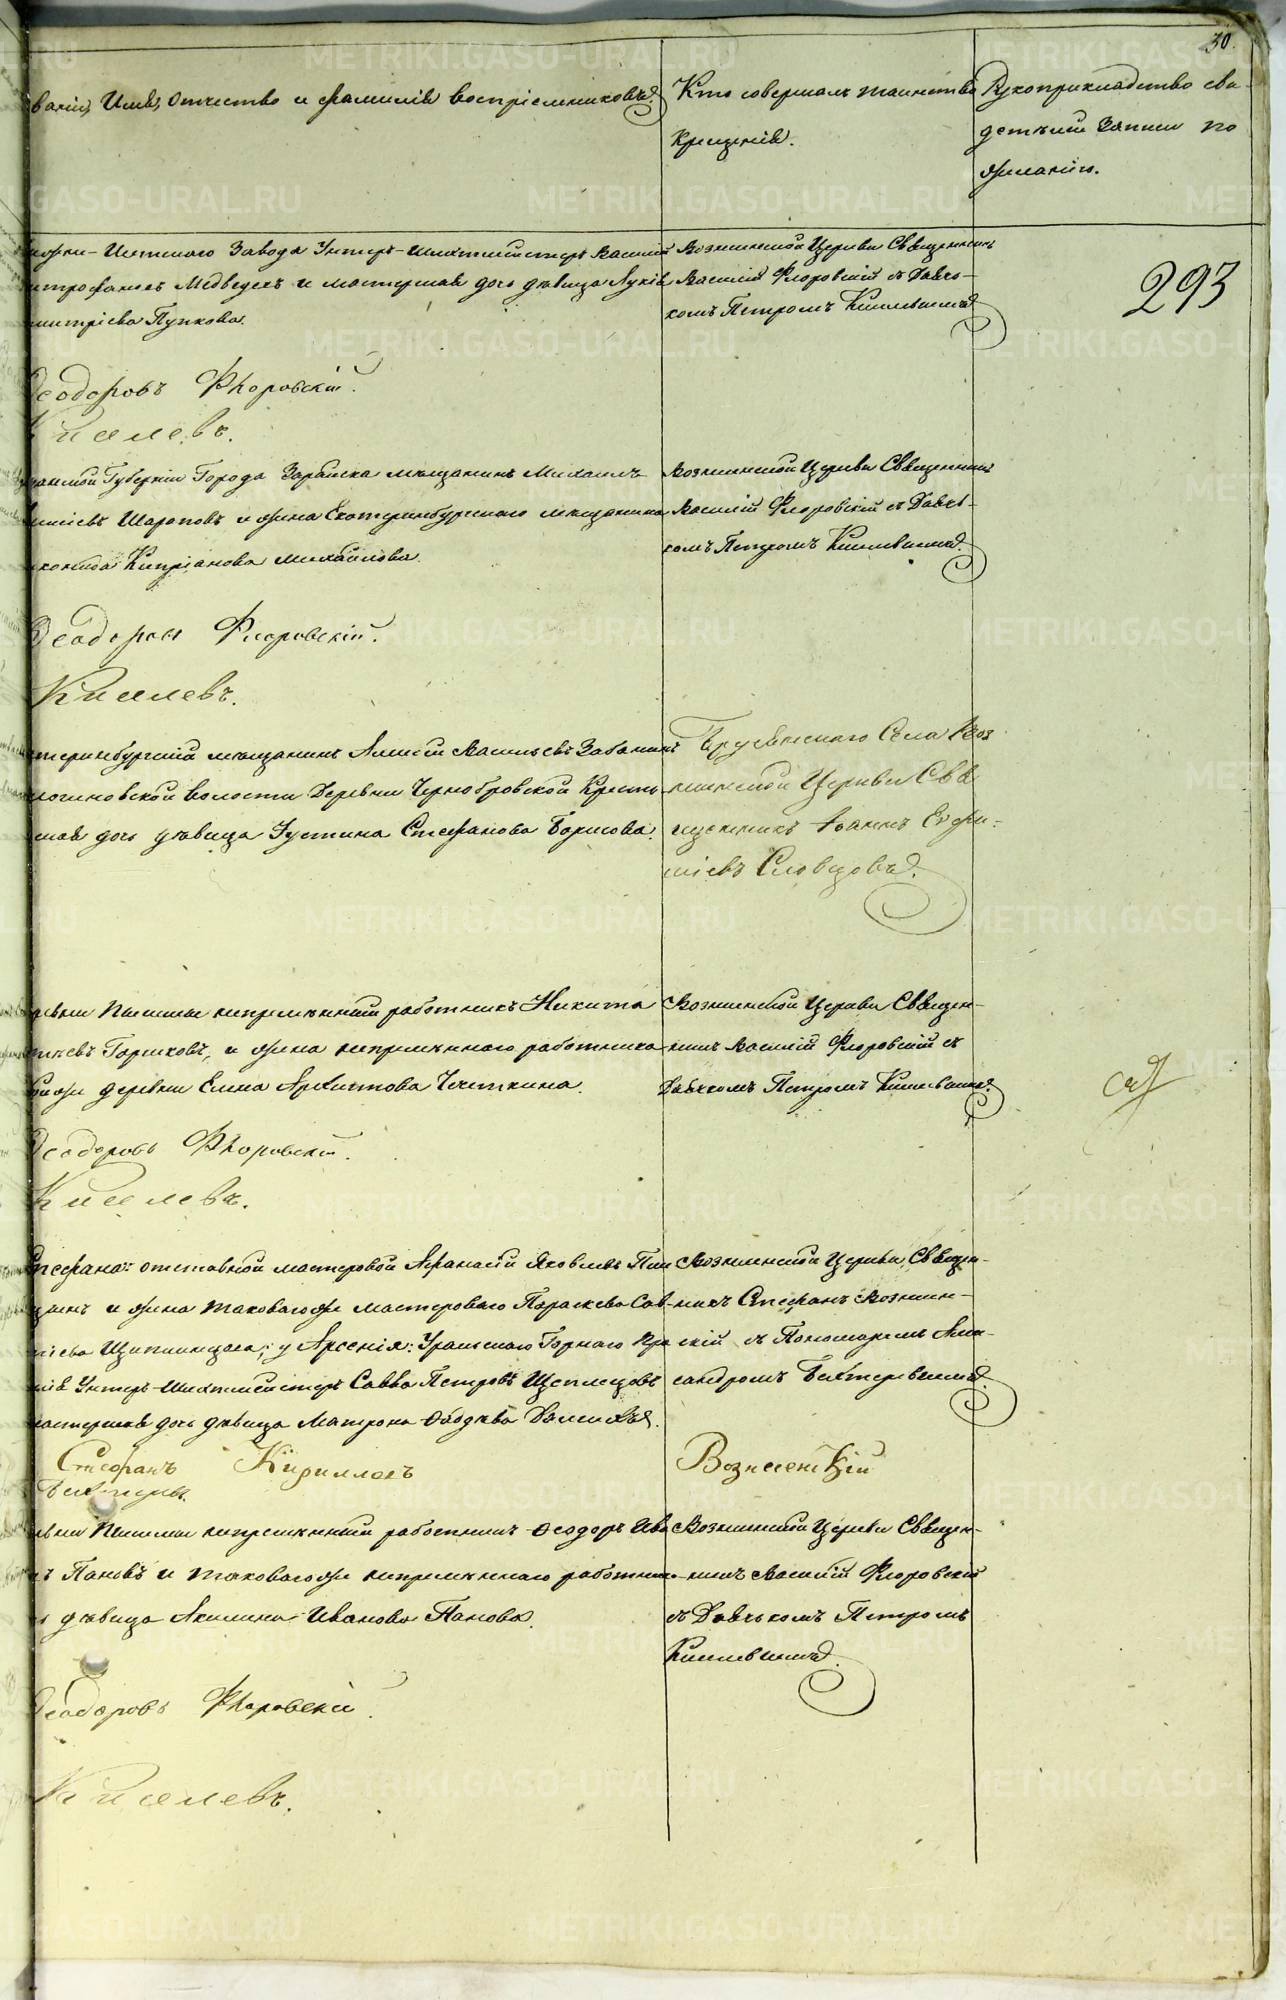 30.
ванiе, Имя, Отчество и фамилiя воспрiемниковъ.
Кто совершалъ таинство
крещенiя.
Рукоприкладство сви-
детелей записи по
желанiю.
Исетскаго Завода Унтеръ-шихтмейстеръ Василiй
Медведевъ и мастерская дочь девица
митрiева Пупкова.
Вознесенской Церкви Священникъ
Василiй Флоровскiй съ Дьяч-
комъ Петромъ Киселевымъ.
293
Феодоровъ Флоровскiй.
Киселевъ.
Губернiи Города Зарайска мещанинъ Михаилъ
Шароповъ и жена Екатеринбургскаго мещанина
Кипрiанова Михайлова.
Вознесенской Церкви Священникъ
Василiй Флоровскiй съ Дьяч-
комъ Петромъ Киселевымъ.
Феодоровъ Флоровскiй.
Киселевъ.
теринбургскiй мещанинъ Алексей Васильевъ
логиновской волости Деревни Чернобровской Кресть-
дочь девица Устина Стефанова Борисова.
Брусянскаго Села Воз
несенской Церкви Свя
щенникъ Iоаннъ Евфи-
мiевъ Словцовъ.
ревни Пышмы непременный работникъ Никита
Горшковъ, и жена непременнаго работника
деревни Елена Архипова Чечеткина.
Вознесенской Церкви Священ-
никъ Василiй Флоровскiй съ
Дьячкомъ Петромъ Киселевымъ.
Феодоровъ Флоровскiй.
Киселевъ.
Стефана: отставной мастеровой Афанасiй Яковлевъ
и жена таковагоже мастероваго Параскева Сав-
у Арсенiя: Уральскаго Горнаго
Унтеръ-Шихтмейстеръ Савва Петровъ Щеплецовъ
мастерская дочь девица Матрона
Вознесенской Церкви Священ-
никъ Стефанъ Вознесен-
скiй съ Пономаремъ Алек-
сандромъ Бехтеревымъ.
Стефанъ Кирилловъ Вознесенскiй
ревни Пышмы непременный работникъ Феодоръ Ива
Пановъ и таковагоже непременнаго работника
девица Акилина Иванова Панова.
Вознесенской Церкви Священ-
никъ Василiй Флоровскiй
съ Дьячькомъ Петромъ
Киселевымъ.
Феодоровъ Флоровскiй.
Киселевъ.
METRIKI.GASO-URAL.RU